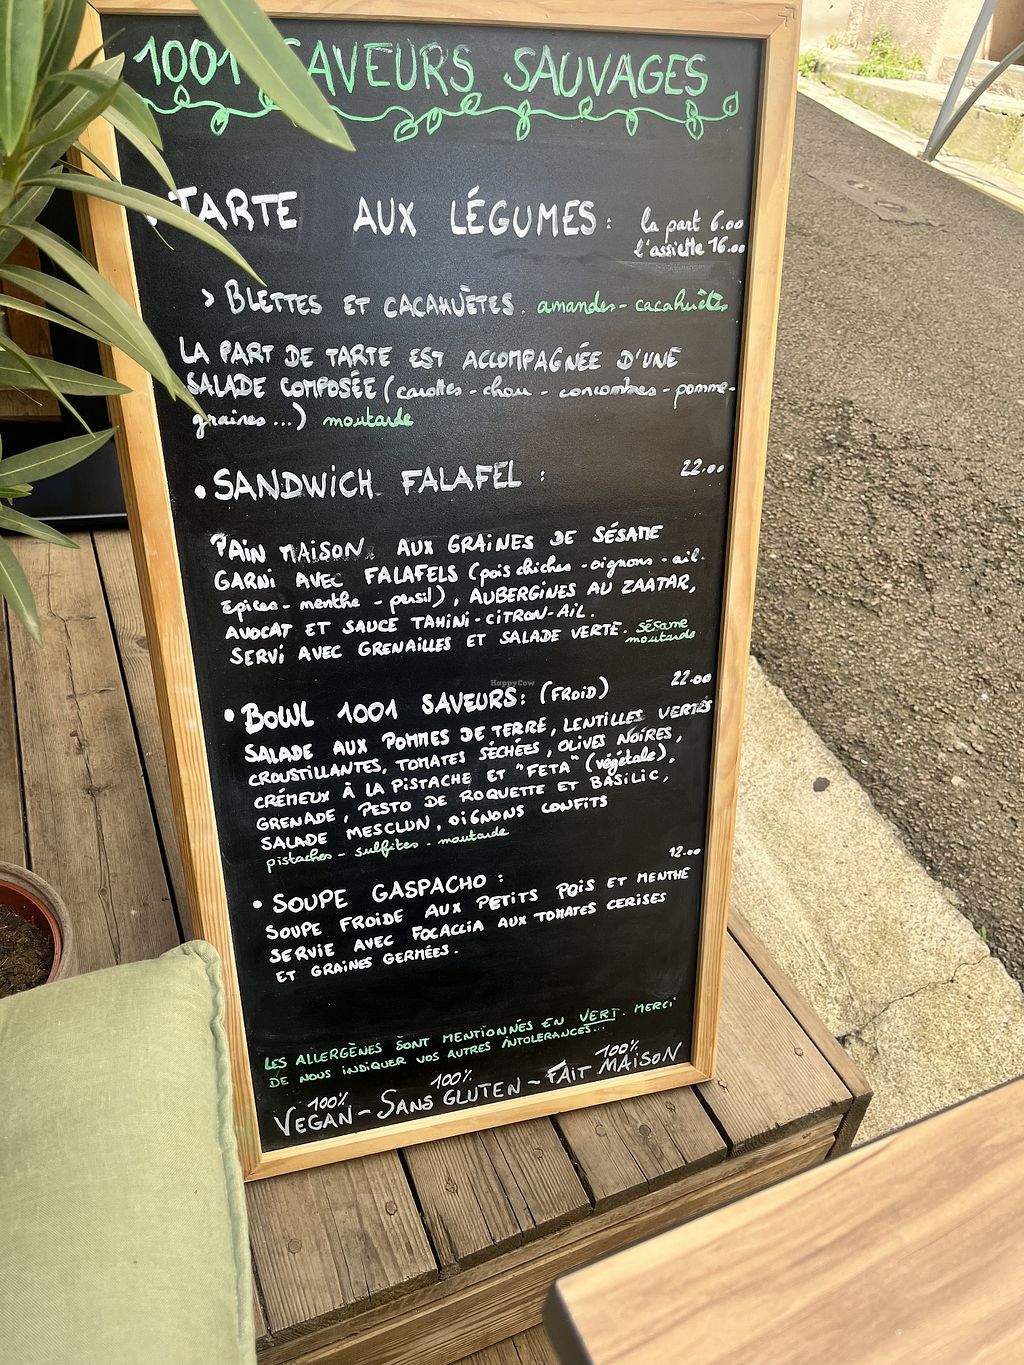 1001 SAVEURS SAUVAGES
TARTE AUX LÉGUMES : la part 6.00
l'assiette 16.00
> BLETTES ET CACAHUÈTES. amandes - cacahuètes
LA PART DE TARTE EST ACCOMPAGNÉE D'UNE
SALADE COMPOSÉE (carottes - chou - concombres - pomme -
graines ...) moutarde
• SANDWICH FALAFEL : 22.00
PAIN MAISON AUX GRAINES DE SÉSAME
GARNI AVEC FALAFELS (pois chiches - oignons - ail -
épices - menthe - persil), AUBERGINES AU ZAATAR,
AVOCAT ET SAUCE TAHINI - CITRON - AIL.
SERVI AVEC GRENAILLES ET SALADE VERTE. sésame
moutarde
• BOWL 1001 SAVEURS : (FROID) 22.00
SALADE AUX POMMES DE TERRE, LENTILLES VERTES
CROUSTILLANTES, TOMATES SÉCHÉES, OLIVES NOIRES,
CRÉMEUX À LA PISTACHE ET "FETA" (végétale),
GRENADE, PESTO DE ROQUETTE ET BASILIC,
SALADE MESCLUN, OIGNONS CONFITS
pistaches - sulfites - moutarde
• SOUPE GASPACHO : 12.00
SOUPE FROIDE AUX PETITS POIS ET MENTHE
SERVIE AVEC FOCACCIA AUX TOMATES CERISES
ET GRAINES GERMÉES.
LES ALLERGÈNES SONT MENTIONNÉS EN VERT. MERCI
DE NOUS INDIQUER VOS AUTRES INTOLERANCES...
100% 100% 100%
VEGAN - SANS GLUTEN - FAIT MAISON
HappyCow